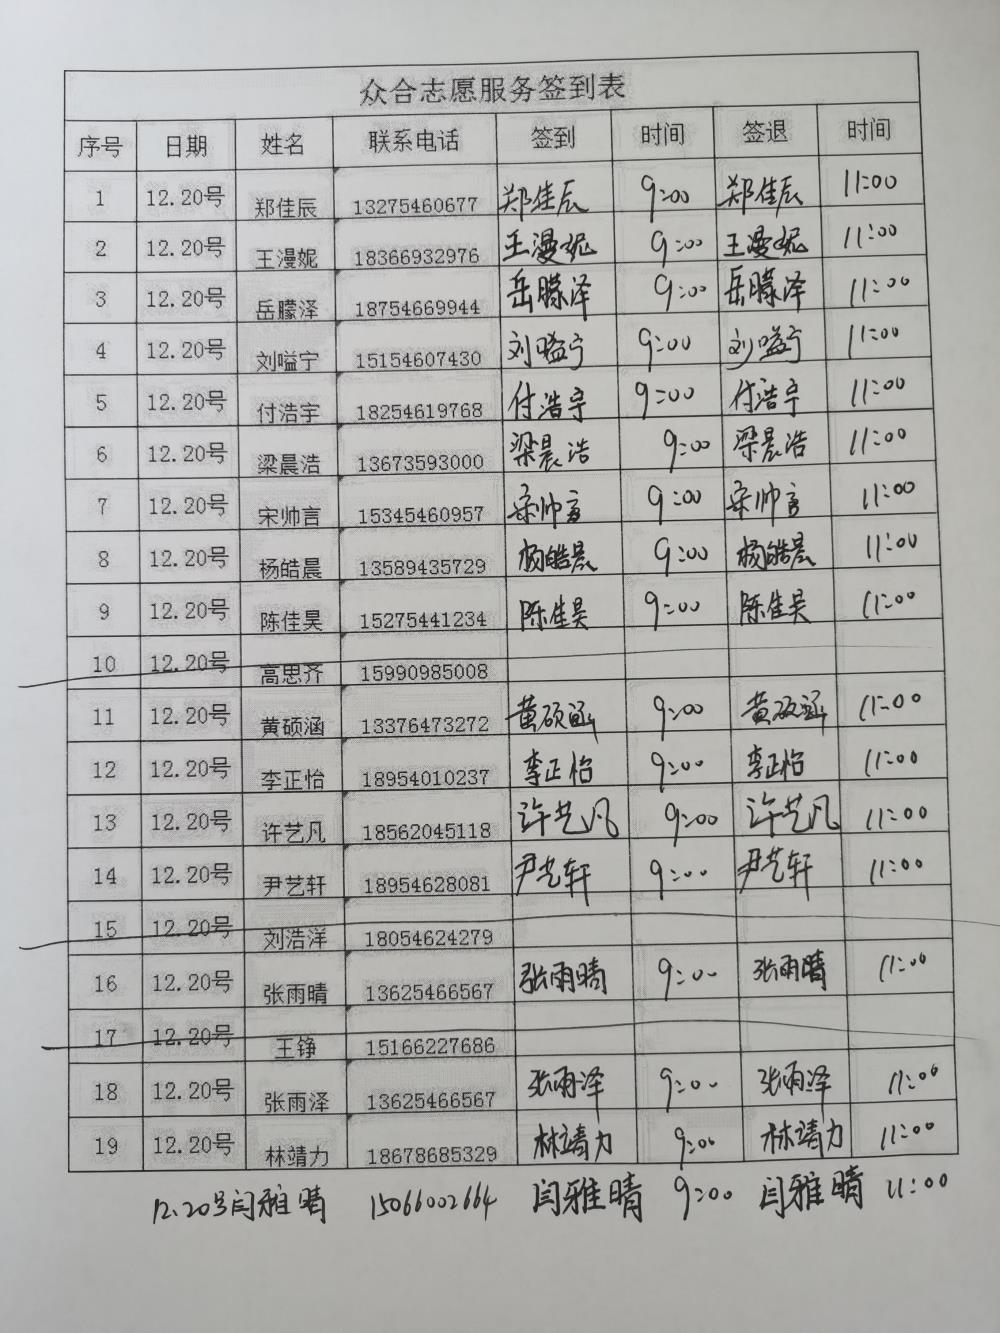 众合志愿服务签到表
序号 日期 姓名 联系电话 签到 时间 签退 时间
1 12.20号 郑佳辰 13275460677 郑佳辰 9:00 郑佳辰 11:00
2 12.20号 王漫妮 18366932976 王漫妮 9:00 王漫妮 11:00
3 12.20号 岳朦泽 18754669944 岳朦泽 9:00 岳朦泽 11:00
4 12.20号 刘嗌宁 15154607430 刘嗌宁 9:00 刘嗌宁 11:00
5 12.20号 付浩宇 18254619768 付浩宇 9:00 付浩宇 11:00
6 12.20号 梁晨浩 13673593000 梁晨浩 9:00 梁晨浩 11:00
7 12.20号 宋帅言 15345460957 宋帅言 9:00 宋帅言 11:00
8 12.20号 杨皓晨 13589435729 杨皓晨 9:00 杨皓晨 11:00
9 12.20号 陈佳昊 15275441234 陈佳昊 9:00 陈佳昊 11:00
10 12.20号 高思齐 15990985008
11 12.20号 黄硕涵 13376473272 黄硕涵 9:00 黄硕涵 11:00
12 12.20号 李正怡 18954010237 李正怡 9:00 李正怡 11:00
13 12.20号 许艺凡 18562045118 许艺凡 9:00 许艺凡 11:00
14 12.20号 尹艺轩 18954628081 尹艺轩 9:00 尹艺轩 11:00
15 12.20号 刘浩洋 18054624279
16 12.20号 张雨晴 13625466567 张雨晴 9:00 张雨晴 11:00
17 12.20号 王铮 15166227686
18 12.20号 张雨泽 13625466567 张雨泽 9:00 张雨泽 11:00
19 12.20号 林靖力 18678685329 林靖力 9:00 林靖力 11:00
12.20号 闫雅晴 15066002664 闫雅晴 9:00 闫雅晴 11:00